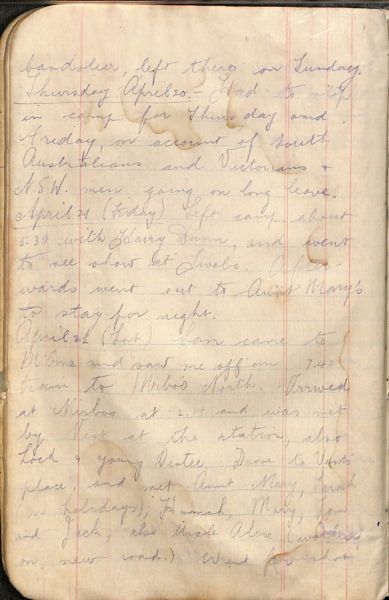 bandolier, left there on Sunday.
Thursday April 20. - Had to stop
in camp for Thursday and
Friday, on account of South
Australians and Victorians &
N.S.W. men going on long leave.
April 21 (Friday) Left camp about
5.30 with Harry Dunn, and went
to see show at Tivoli. After-
wards went out to Aunt Mary's
to stay for night.
April 22 (Sat) came to
M'bne and saw me off on 7.40
train to Mirboo North. Arrived
at Mirboo at 2.15 and was met
by at the station, also
Jock & young Drove to
place, and met Aunt Mary,
(on holidays), Hannah, Mary,
and Jack, also Uncle Alex (working
on new road.) Went for